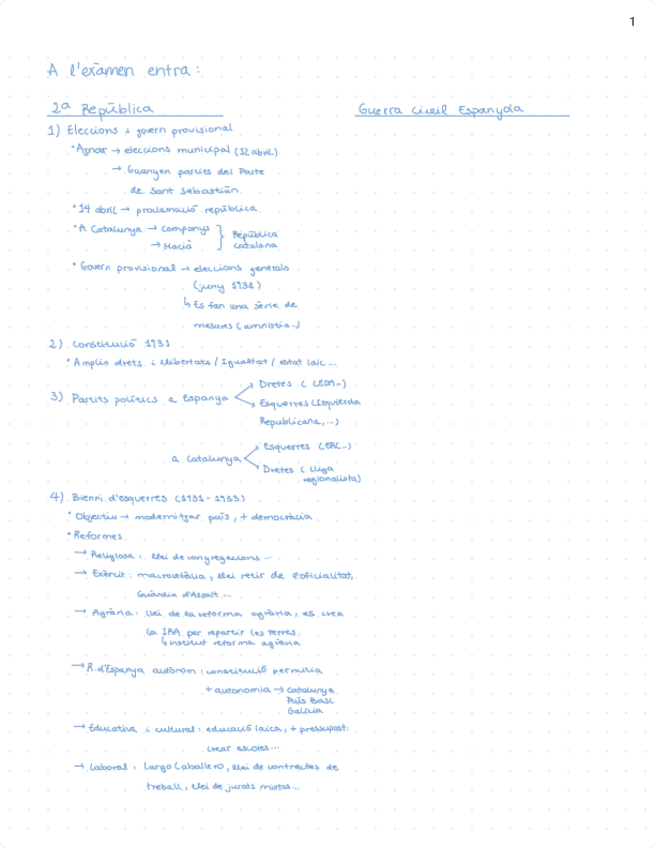 1
A l'exàmen entra:
2ª República
Guerra Civil Espanyola
1) Eleccions i govern provisional
• Aznar → eleccions municipal (12 abril)
→ Guanyen partits del Pacte
de Sant Sebastián.
• 14 abril → proclamació república.
• A Catalunya → Companys } República
→ Macià } Catalana
• Govern provisional → eleccions generals
(juny 1931)
↳ Es fan una sèrie de
mesures (amnistia...)
2) Constitució 1931
• Amplis drets i llibertats / Igualtat / estat laic...
3) Partits polítics a Espanya
Dretes (CEDA...)
Esquerres (Izquierda
Republicana,...)
a Catalunya
Esquerres (ERC...)
Dretes (Lliga
regionalista)
4) Bienni d'esquerres (1931-1933)
• Objectiu → modernitzar país, + democràcia
• Reformes.
→ Religiosa: llei de congregacions...
→ Exèrcit: macrocefàlia, llei retir de l'oficialitat,
Guàrdia d'Assalt...
→ Agrària: llei de la reforma agrària, es crea
la IRA per repartir les terres.
↳ institut reforma agrària
→ R. d'Espanya autònom: constitució permitia
+ autonomia → Catalunya
País Basc
Galícia
→ Educativa i cultural: educació laica, + pressupost:
crear escoles...
→ Laboral: Largo Caballero, llei de contractes de
treball, llei de jurats mixtos...